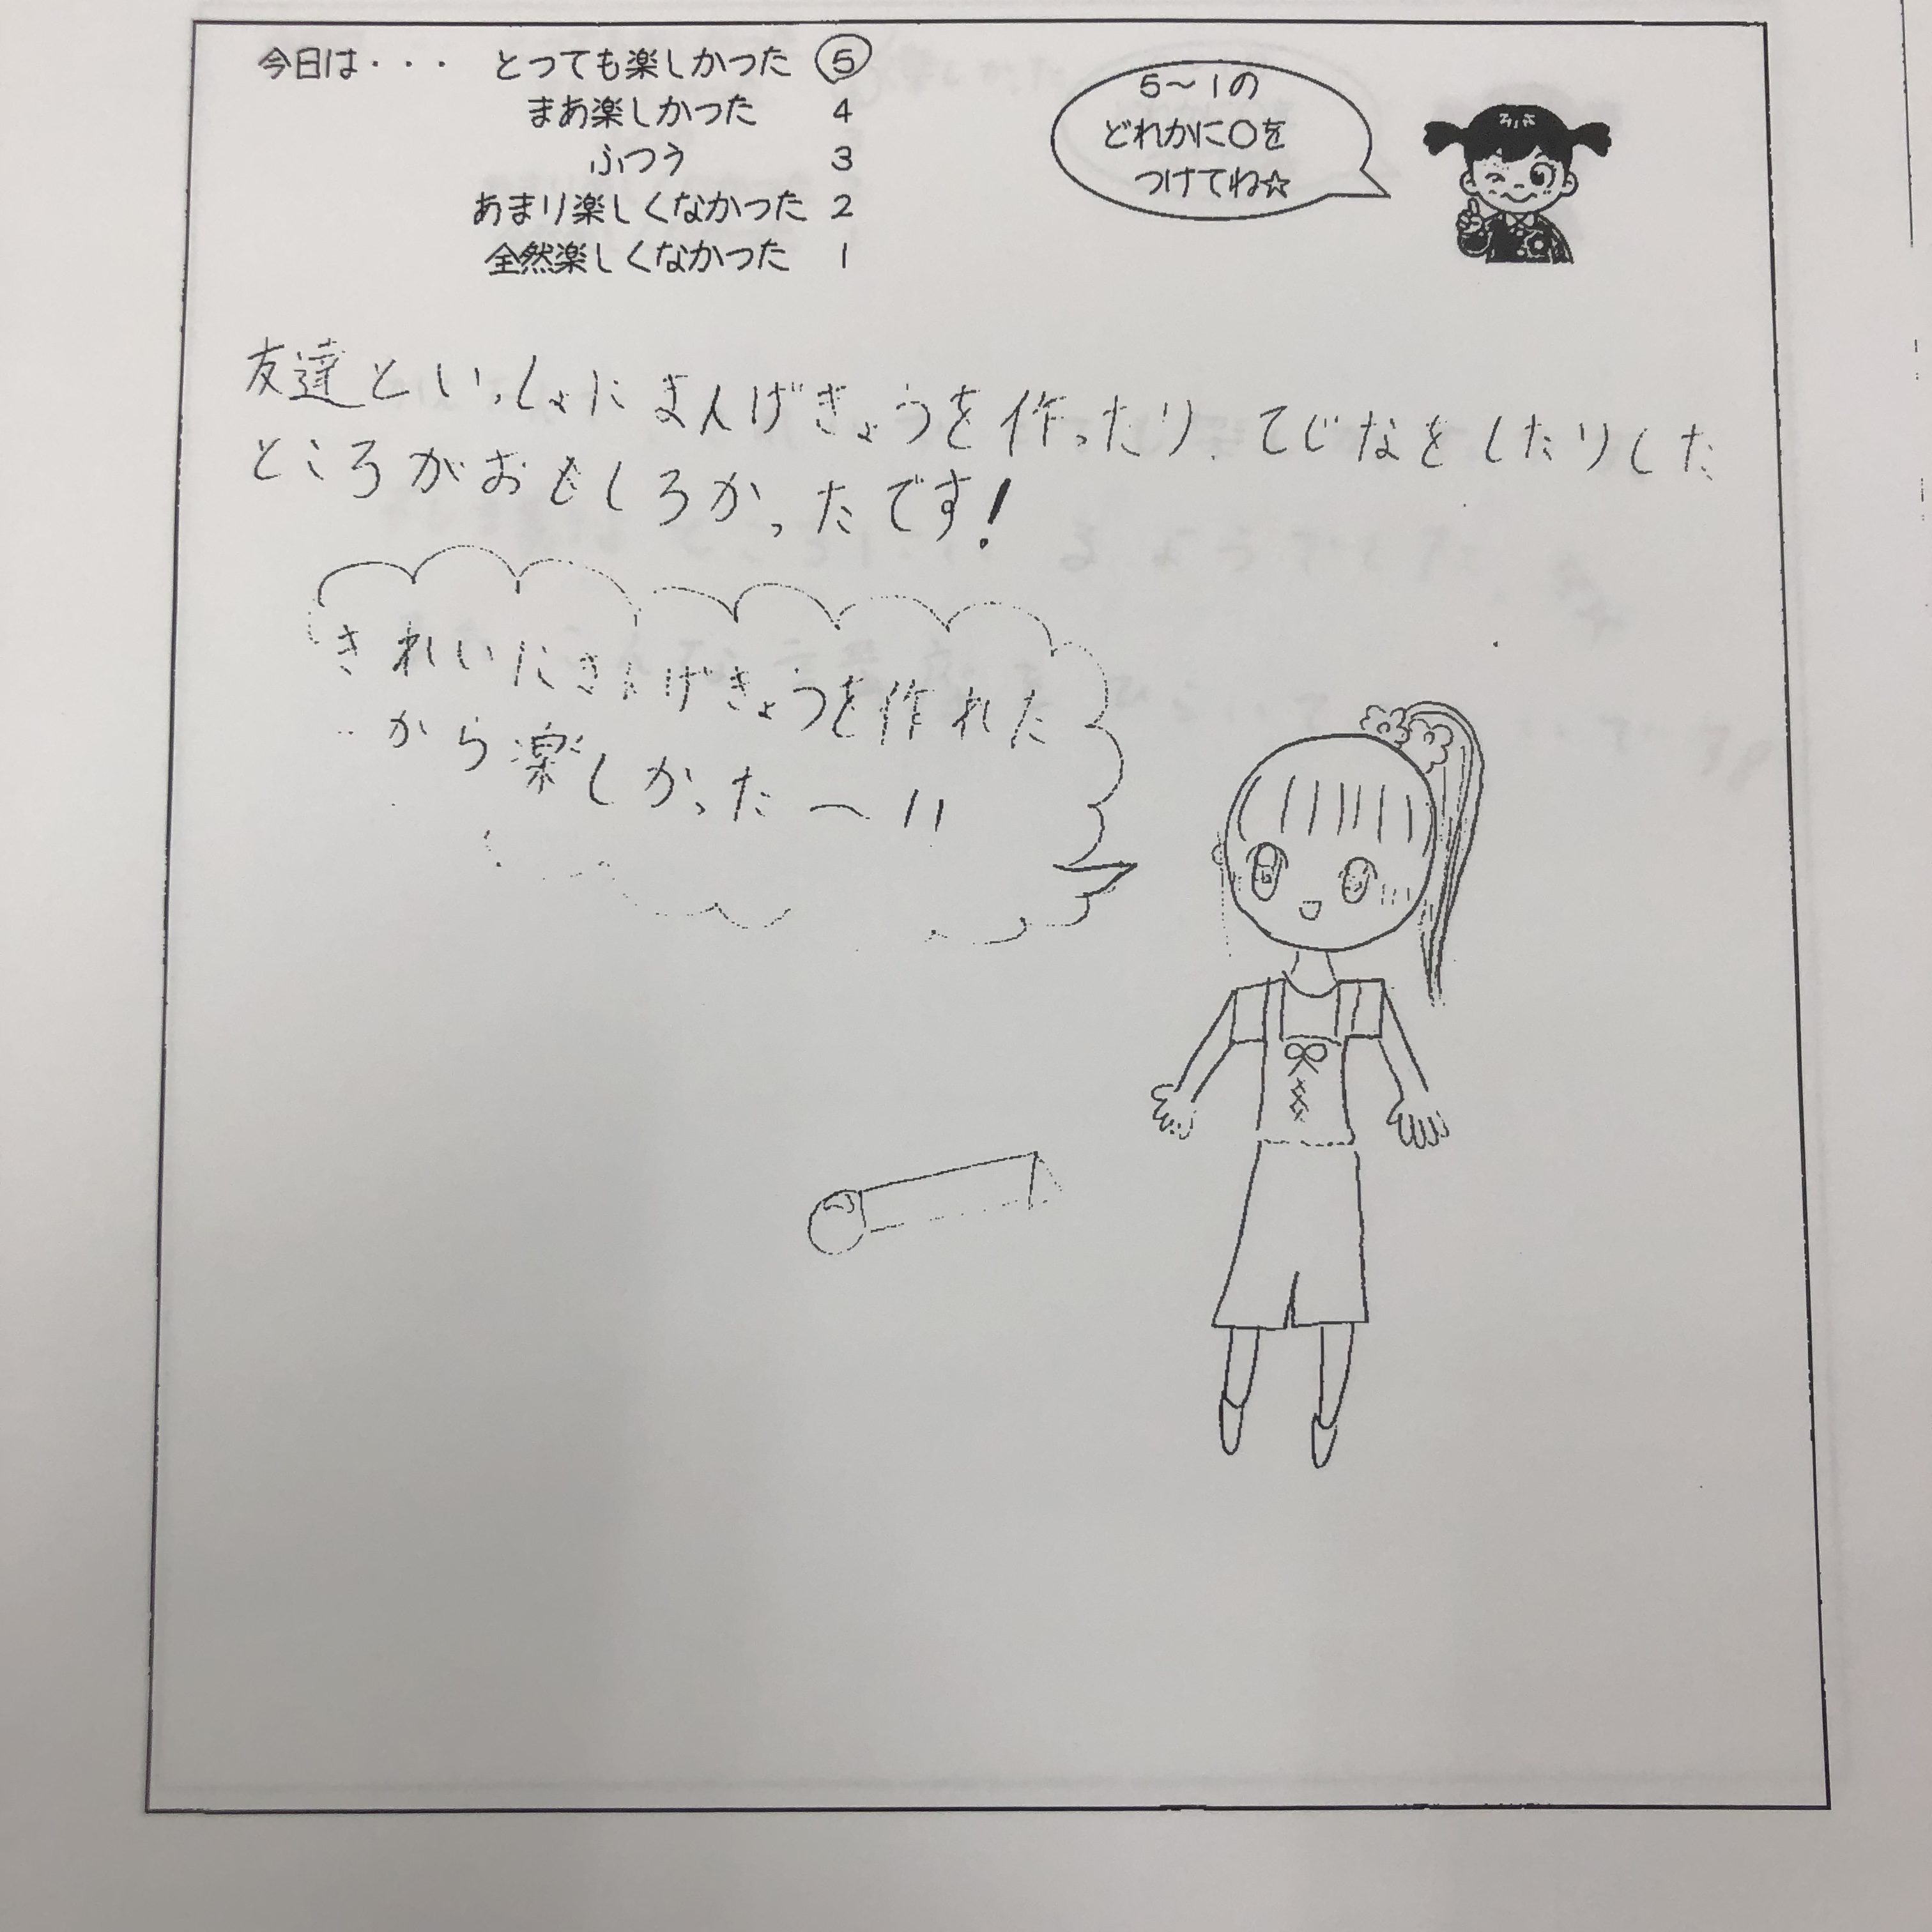 今日は・・・ とっても楽しかった 5
まあ楽しかった 4
ふつう 3
あまり楽しくなかった 2
全然楽しくなかった 1
5〜1の
どれかに〇を
つけてね☆
友達といっしょにまんげきょうを作ったり、てじなをしたりした
ところがおもしろかったです!
きれいにまんげきょうを作れた
から楽しかった〜!!